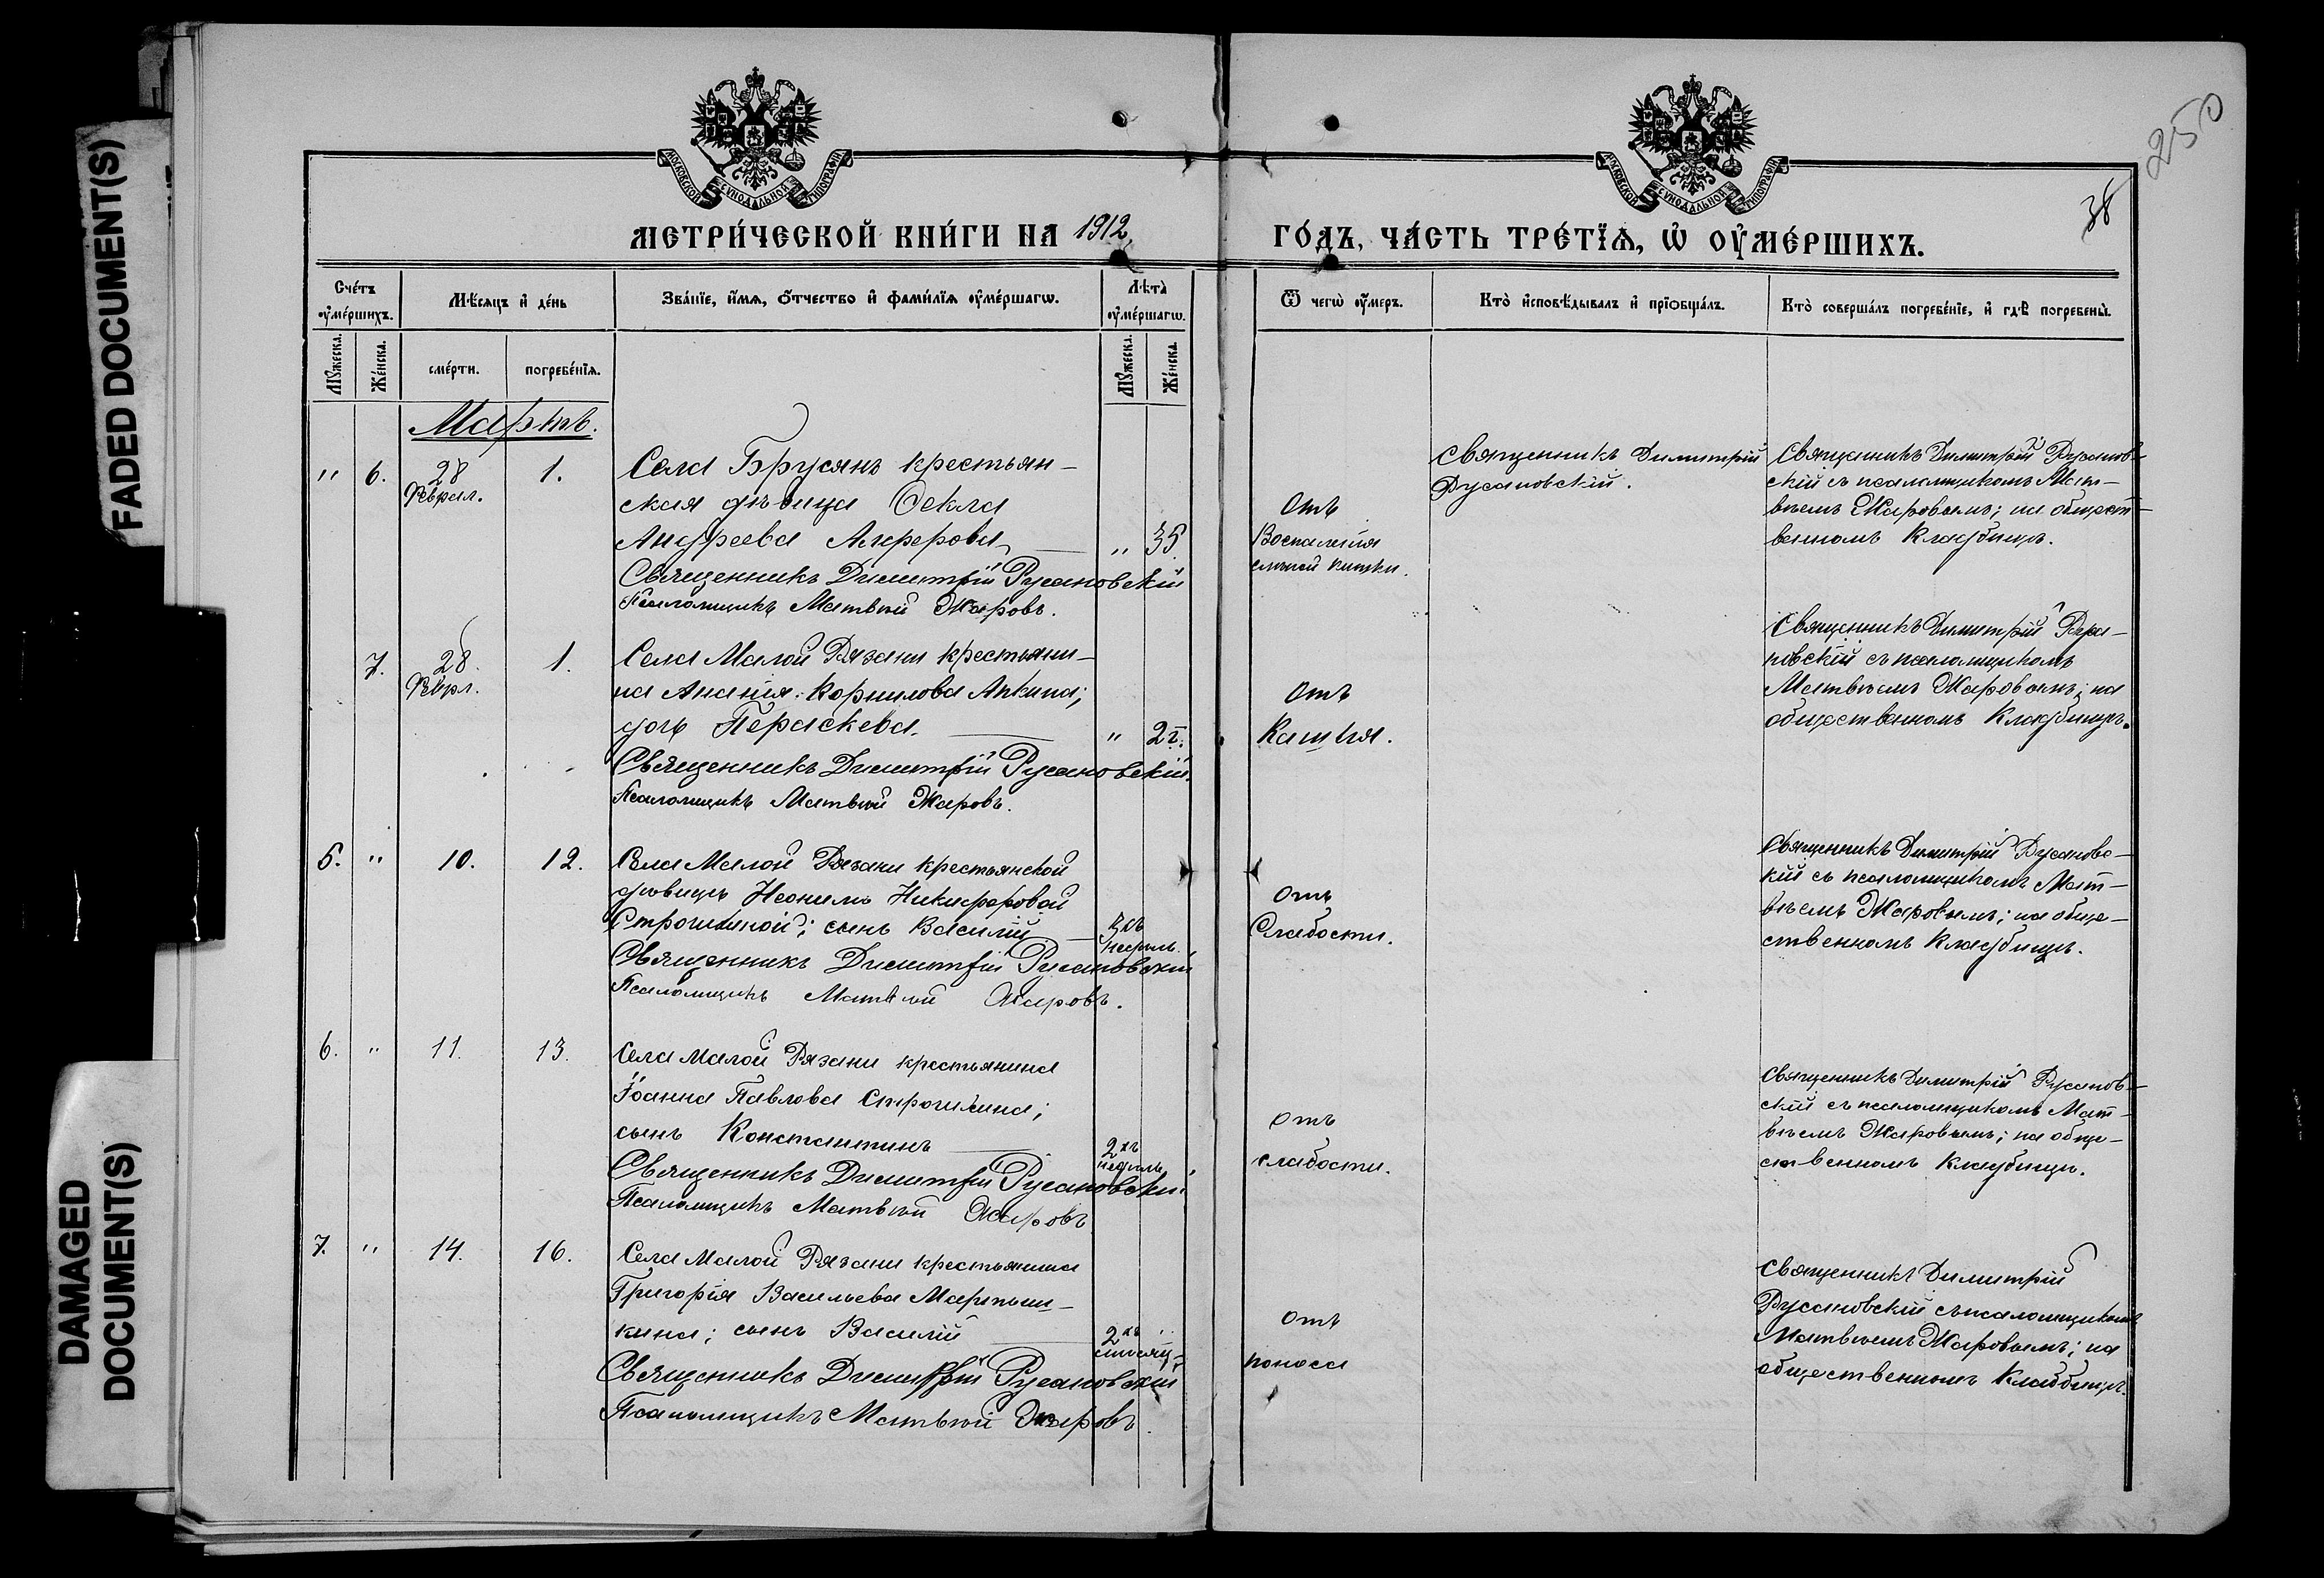 FADED DOCUMENT(S)
DAMAGED
DOCUMENT(S)
250
38
МОСКОВСКОЙ СУНОДАЛЬНОЙ ТИПОГРАФІИ
МОСКОВСКОЙ СУНОДАЛЬНОЙ ТИПОГРАФІИ
МЕТРИ́ЧЕСКОЙ КНИ́ГИ НА 1912
ГО́ДЪ, ЧА́СТЬ ТРЕ́ТЇѦ, Ѡ҆ ОУ҆МЕ́РШИХЪ.
Сче́тъ оу҆ме́ршихъ.
Мѣ́сѧцъ и҆ де́нь
Зва́нїе, и҆́мѧ, ѻ҆́тчество и҆ фами́лїѧ оу҆ме́ршагѡ.
Лѣ́та оу҆ме́ршагѡ.
Ѿ чегѡ̀ оу҆́меръ.
Кто̀ и҆сповѣ́дывалъ и҆ прїѡбща́лъ.
Кто̀ соверша́лъ погребе́нїе, и҆ гдѣ̀ погребены̀.
Мꙋ́жеска.
Же́нска.
сме́рти.
погребе́нїѧ.
Мꙋ́жеска.
Же́нска.
Мартъ.
" 6. 28 Феврал. 1.
Села Брусянъ крестьян-
ская дѣвица Ѳекла
Андреева Алферова " 35
Священникъ Димитрій Русановскій
Псаломщикъ Матвѣй Жаровъ.
Отъ
Воспаленія
слѣпой кишки.
Священникъ Димитрій
Русановскій.
Священникъ Димитрій Русанов-
скій съ псаломщикомъ Мат-
вѣемъ Жаровымъ; на общест-
венномъ кладбищѣ.
7. 28 Феврл. 1.
Села Малой Рязани крестьяни-
на Ананія Корнилова Апкина;
дочь Параскева. " 2 г.
Священникъ Димитрій Русановскій.
Псаломщикъ Матвѣй Жаровъ.
Отъ
Кашля.
Священникъ Димитрій Руса-
новскій съ псаломщикомъ
Матвѣемъ Жаровымъ; на
общественномъ кладбищѣ.
5. " 10. 12.
Села Малой Рязани крестьянской
дѣвицы Неонилы Никифоровой
Строчилиной; сынъ Василій 3хъ недѣль.
Священникъ Димитрій Русановскій
Псаломщикъ Матвѣй Жаровъ.
Отъ
Слабости.
Священникъ Димитрій Русановс-
кій съ псаломщикомъ Мат-
вѣемъ Жаровымъ; на обще-
ственномъ кладбищѣ.
6. " 11. 13.
Села Малой Рязани крестьянина
Іоанна Павлова Строчилина;
сынъ Константинъ 2хъ недѣль
Священникъ Димитрій Русановскій
Псаломщикъ Матвѣй Жаровъ
Отъ
слабости.
Священникъ Димитрій Русанов-
скій съ псаломщикомъ Мат-
вѣемъ Жаровымъ; на обще-
ственномъ кладбищѣ.
7. " 14. 16.
Села Малой Рязани крестьянина
Григорія Васильева Мартыш-
кина; сынъ Василій 2хъ
Священникъ Димитрій Русановскій
Псаломщикъ Матвѣй Жаровъ.
Отъ
поноса
Священникъ Димитрій
Русановскій съ псаломщикомъ
Матвѣемъ Жаровымъ; на
общественномъ кладбищѣ.